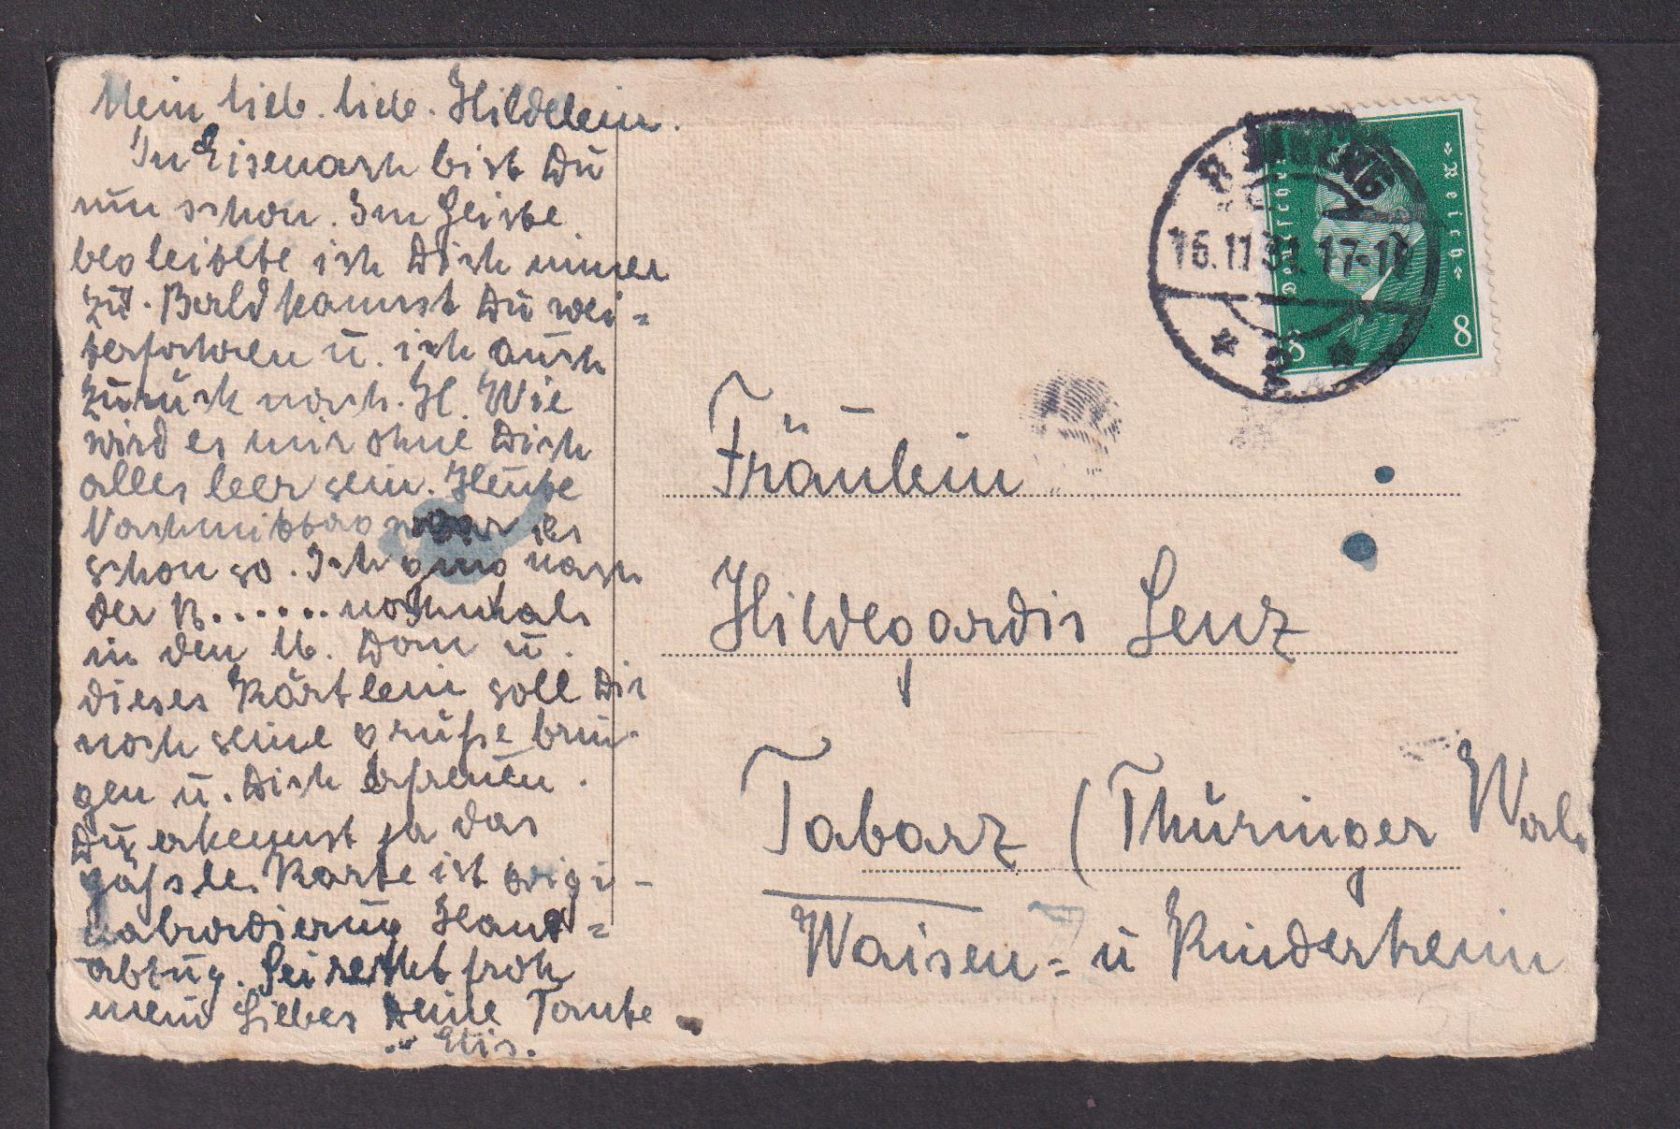 Mein lieb. lieb. Hildelein.
In Eisenach bist Dü
nün schon. Im Geiste
begleitete ich Dich immer
zü. Bald kannst Dü wei=
terfahren ü. ich aüch
zürück nach. H. Wie
wird es mir ohne Dich
alles leer sein. Heüte
Nachmittag war es
schon so. Ich ging nach
der B...... nochmals
in den Dom ü.
dieses Kärtlein soll Dir
noch seine Grüße brin-
gen ü. Dich erfreüen.
Dü erkennst ja das
gäßle. Karte ist origi-
nalradierüng Hand=
abzüg. Sei recht froh
mein Liebes Deine Tante
Elis.
16.11.31.17-18
Deutsches
«Reich»
8
8
Fräulein
Hildegardis Lenz
Tabarz (Thüringer Wald
Waisen= ü Kinderheim